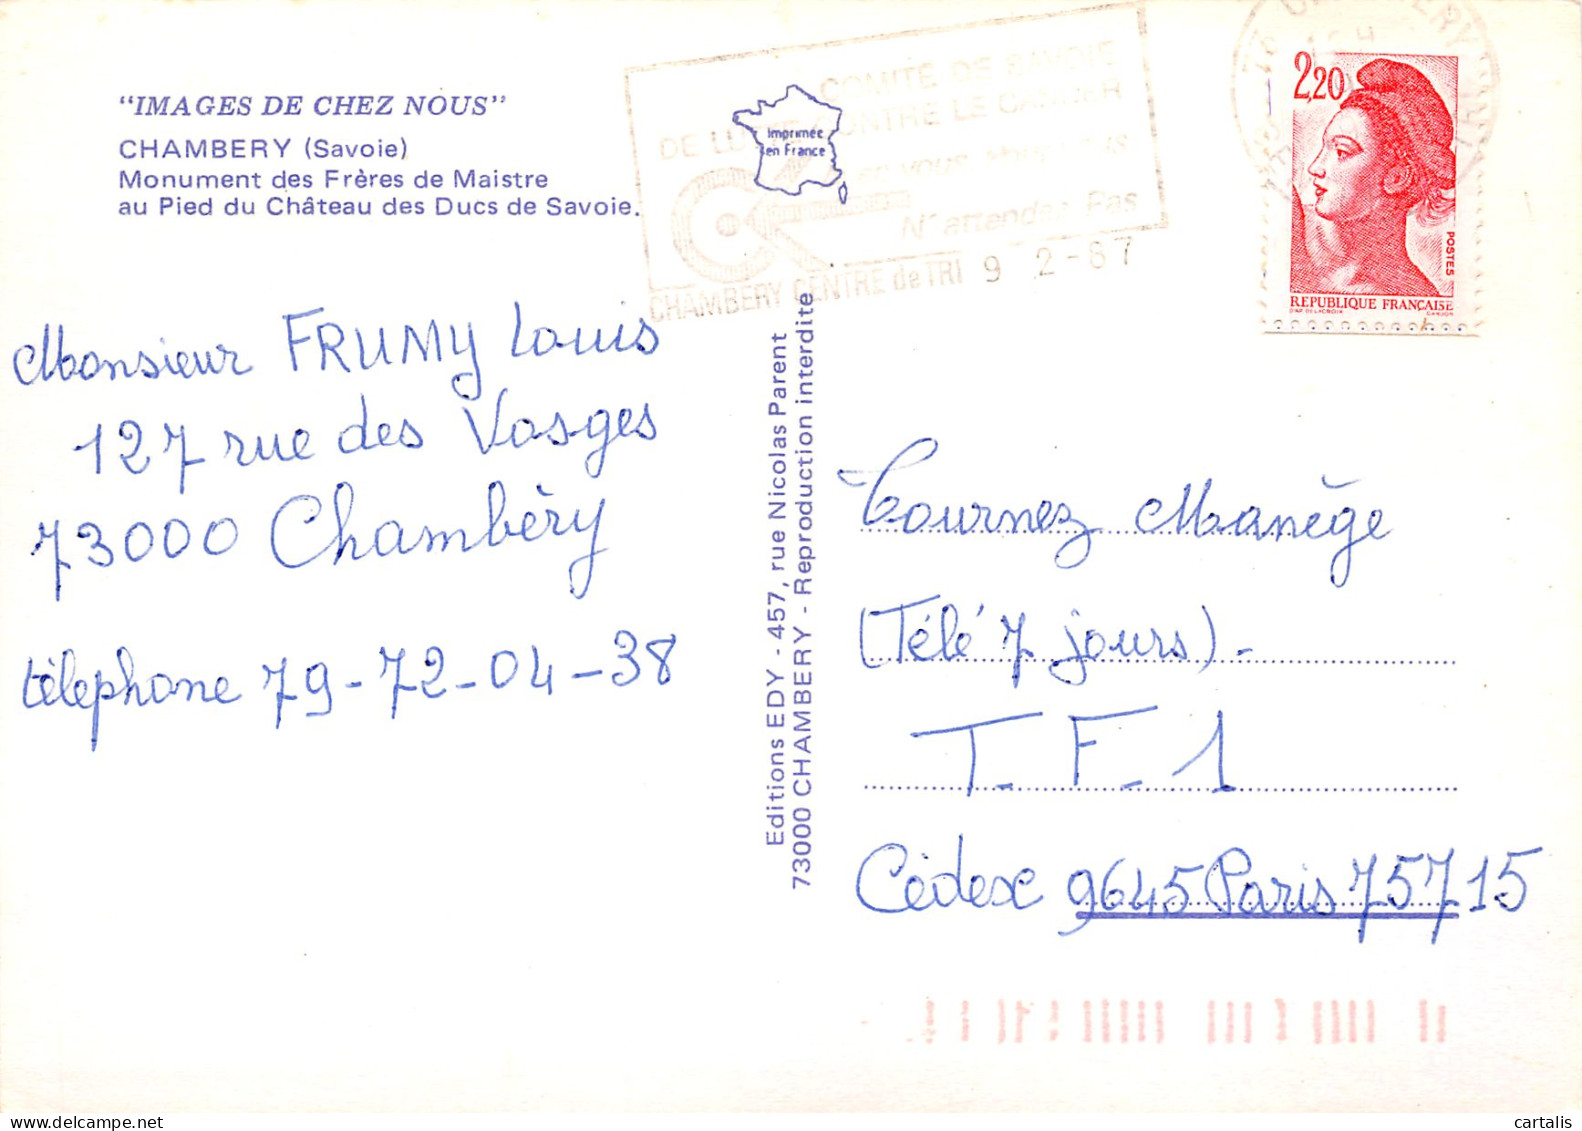 "IMAGES DE CHEZ NOUS"
CHAMBERY (Savoie)
Monument des Frères de Maistre
au Pied du Château des Ducs de Savoie.
COMITÉ DE SAVOIE
DE LUTTE CONTRE LE CANCER
en vous
N'attendez Pas
CHAMBERY CENTRE de TRI 9 2-87
Imprimée
en France
2,20
POSTES
REPUBLIQUE FRANÇAISE
D'AP. DELACROIX GANDON
Monsieur FRUMY Louis
127 rue des Vosges
73000 Chambéry
téléphone 79-72-04-38
Editions EDY - 457, rue Nicolas Parent
73000 CHAMBERY - Reproduction interdite
Tournez Manège
(Télé 7 jours)-
T.F.1
Cédex 9645 Paris 75715
cartalis